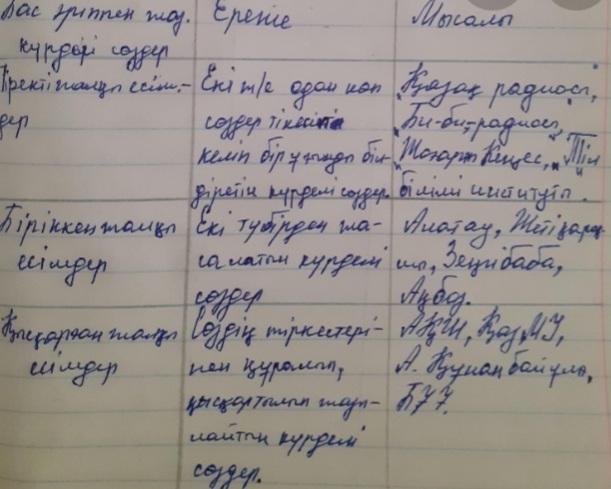 Бас әріппен жаз. Ереже Мысалы
күрделі сөздер
Тіркесті жалқы есім-
дер
Екі т/е одан көп
сөздер тіркесіп
келіп бір ұғымды біл-
діретін күрделі сөздер.
"Қазақ радиосы",
"Би-би-радиосы",
"Жоғарғы Кеңес", "Тіл
білімі институты.
Біріккен жалқы
есімдер
Екі түбірден жа-
салатын күрделі
сөздер
Алатау, Жетіқарақ-
шы, Зеңгібаба,
Ақбоз.
Қысқарған жалқы
есімдер
Сөздің тіркестері-
нен құралып,
қысқартылып жазы-
лайтын күрделі
сөздер.
АҚШ, ҚазМУ,
А. Құнанбайұлы,
БҰҰ.